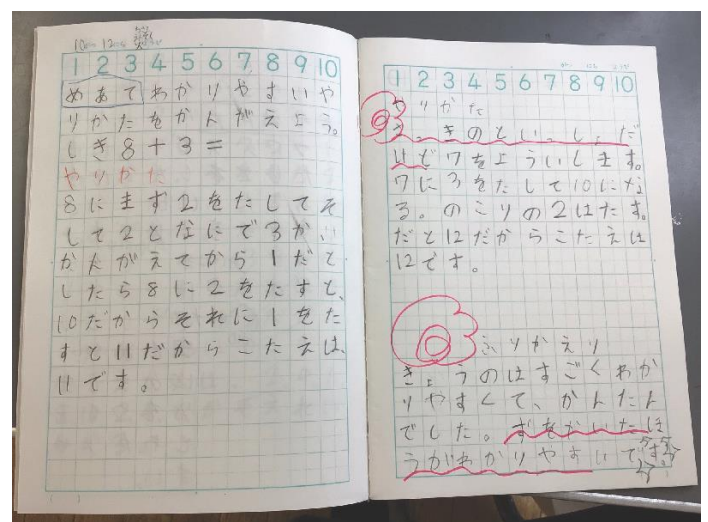 1 2 3 4 5 6 7 8 9 10
めあて わかりやすいや
りかたをかんがえよう。
しき8+3=
やりかた
8にまず2をたしてそ
して2となにで3か、
かんがえてから1だと
したら8に2をたすと、
10だからそれに1をた
すと11だからこたえは、
11です。
1 2 3 4 5 6 7 8 9 10
やりかた
さっきのといっしょだ
けど7をよういします。
7に3をたして10にな
る。のこりの2はたす。
だと12だからこたえは
12です。
ふりかえり
きょうのはすごくわか
りやすくて、かんたん
でした。ずをかいたほ
うがわかりやすいです。